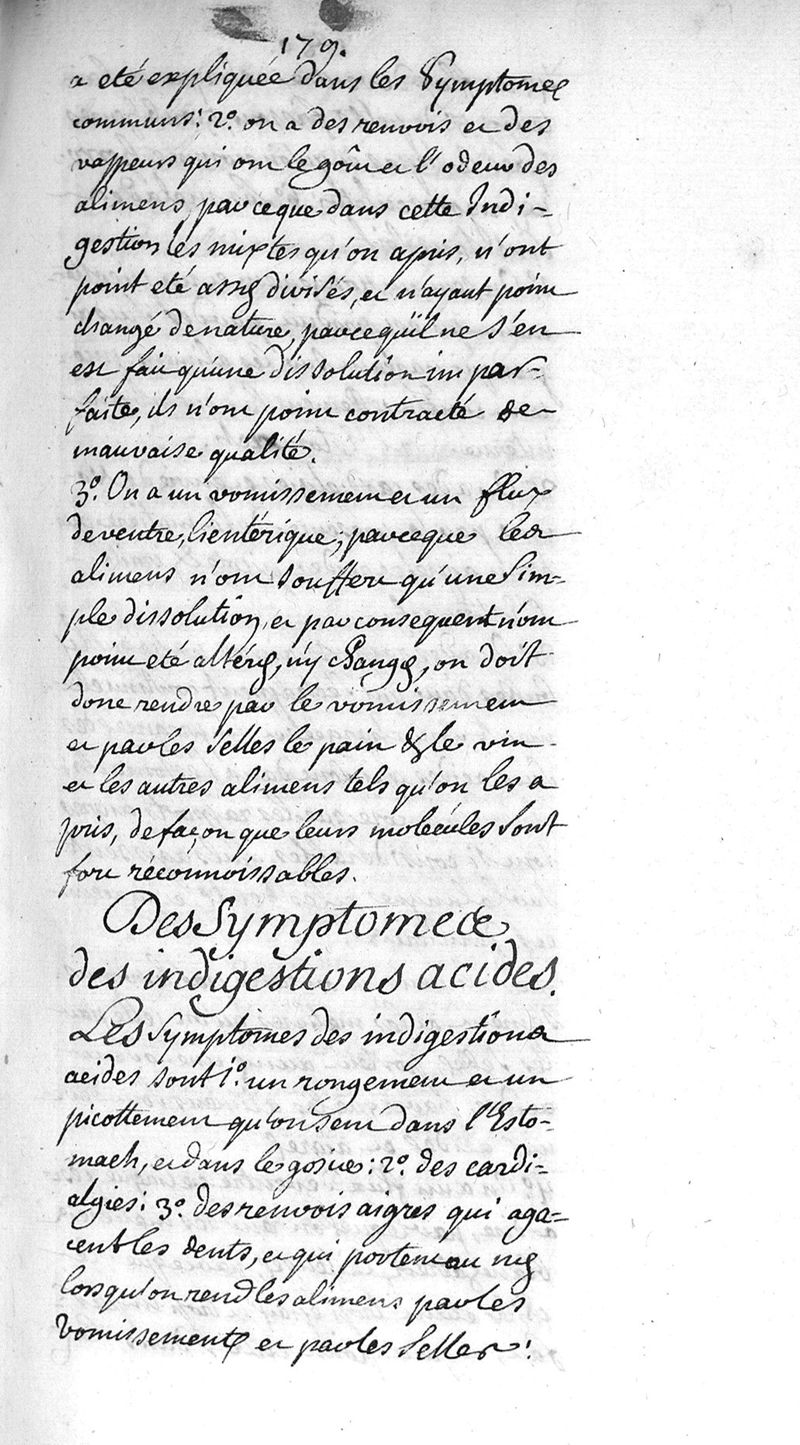 179.
a eté expliquée dans les Symptomes
communs: 2.º on a des renvois et des
vappeurs qui ont le goût et l'odeur des
alimens, parceque dans cette Indi-
gestion les mixtes qu'on a pris, n'ont
point eté assés divisés, et n'ayant point
changé de nature, parcequ'il ne s'en
est fait qu'une dissolution impar-
faite, ils n'ont point contracté de
mauvaise qualité.
3.º On a un vomissement et un flux
de ventre, lientérique; parceque les
alimens n'ont souffert qu'une Sim-
ple dissolution, et par consequent n'ont
point eté altérés, n'y changés, on doit
donc rendre par le vomissement
et par les Selles le pain & le vin
et les autres alimens tels qu'on les a
pris, de façon que leurs molécules sont
fort réconnoissables.
Des Symptomes
des indigestions acides.
Les Symptomes des indigestions
acides sont 1.º un rongement et un
picottement qu'on sent dans l'Esto-
mach, et dans le gosier: 2.º des cardi-
algies: 3.º des renvois aigres qui aga-
cent les dents, et qui portent au nés
lorsqu'on rend les alimens par les
vomissements et par les Selles: